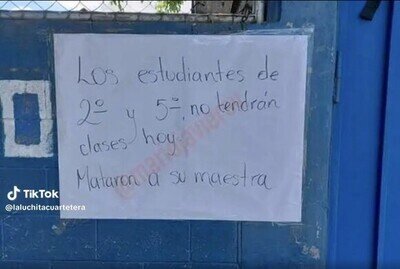 Los estudiantes de
2º y 5º, no tendrán
clases hoy.
Mataron a su maestra
TikTok
@laluchitacuartetera